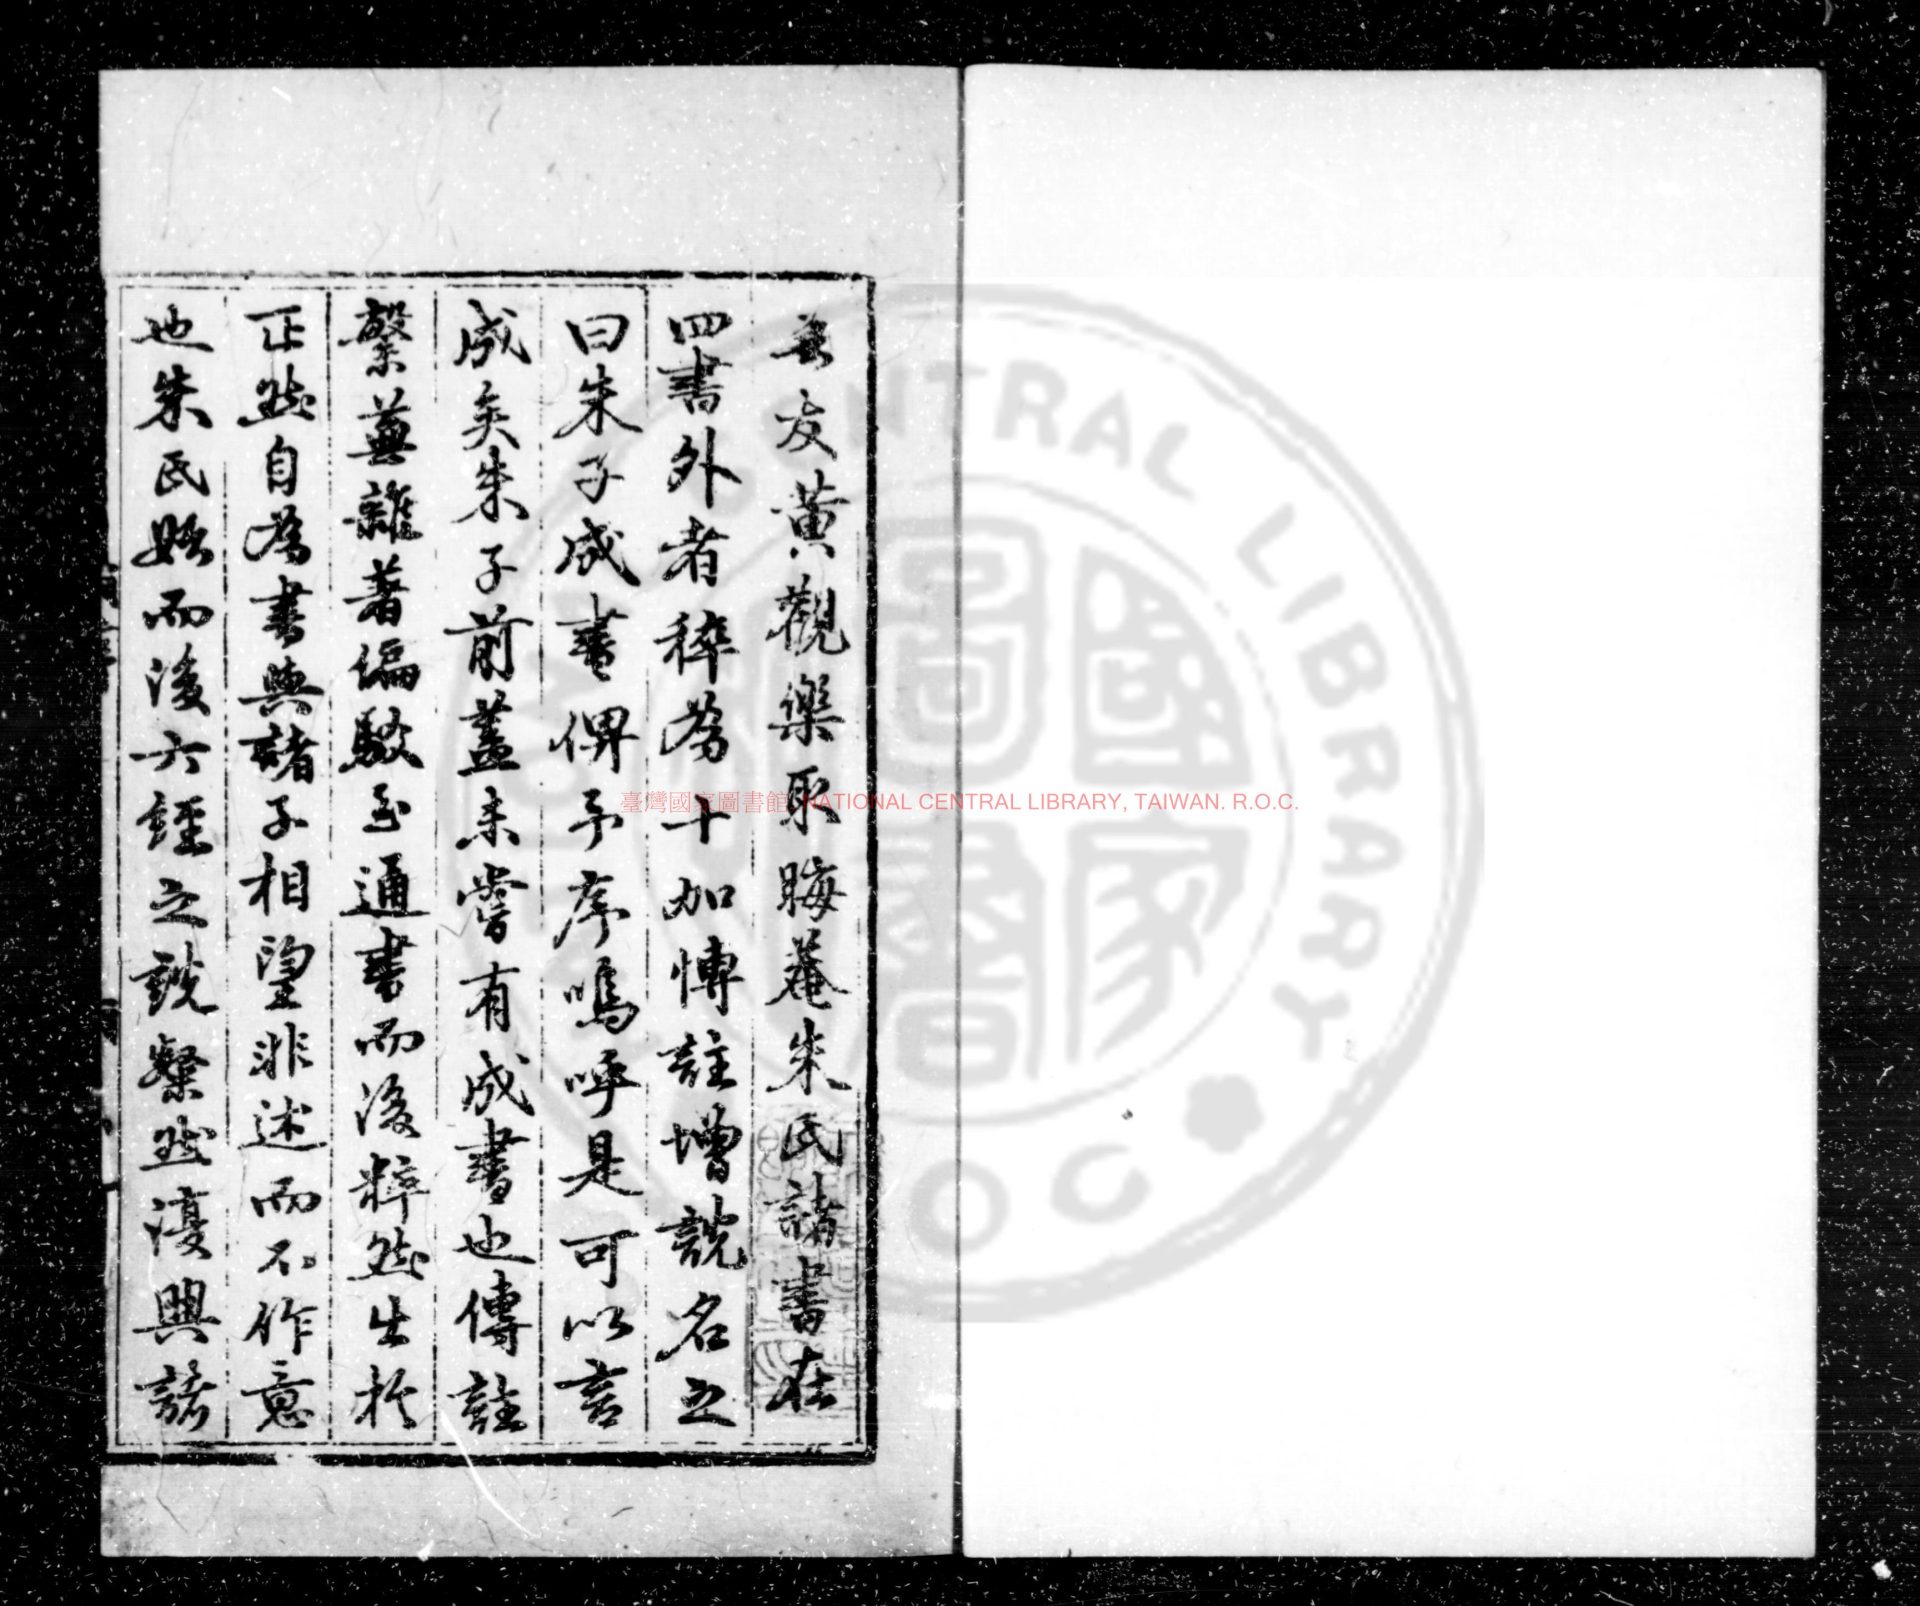 吾友黃觀樂取晦菴朱氏諸書在
四書外者稡為十加愽註增說名之
曰朱子成書俾予序嗚呼是可以言
成矣朱子前蓋未甞有成書也傳註
繁蕪雜著偏駁至通書而後粹然出於
正然自為書與諸子相望非述而不作意
也朱氏始而後六經之說粲然復興諸
臺灣國立圖書館, NATIONAL CENTRAL LIBRARY, TAIWAN. R.O.C.
NTRAL LIBRARY